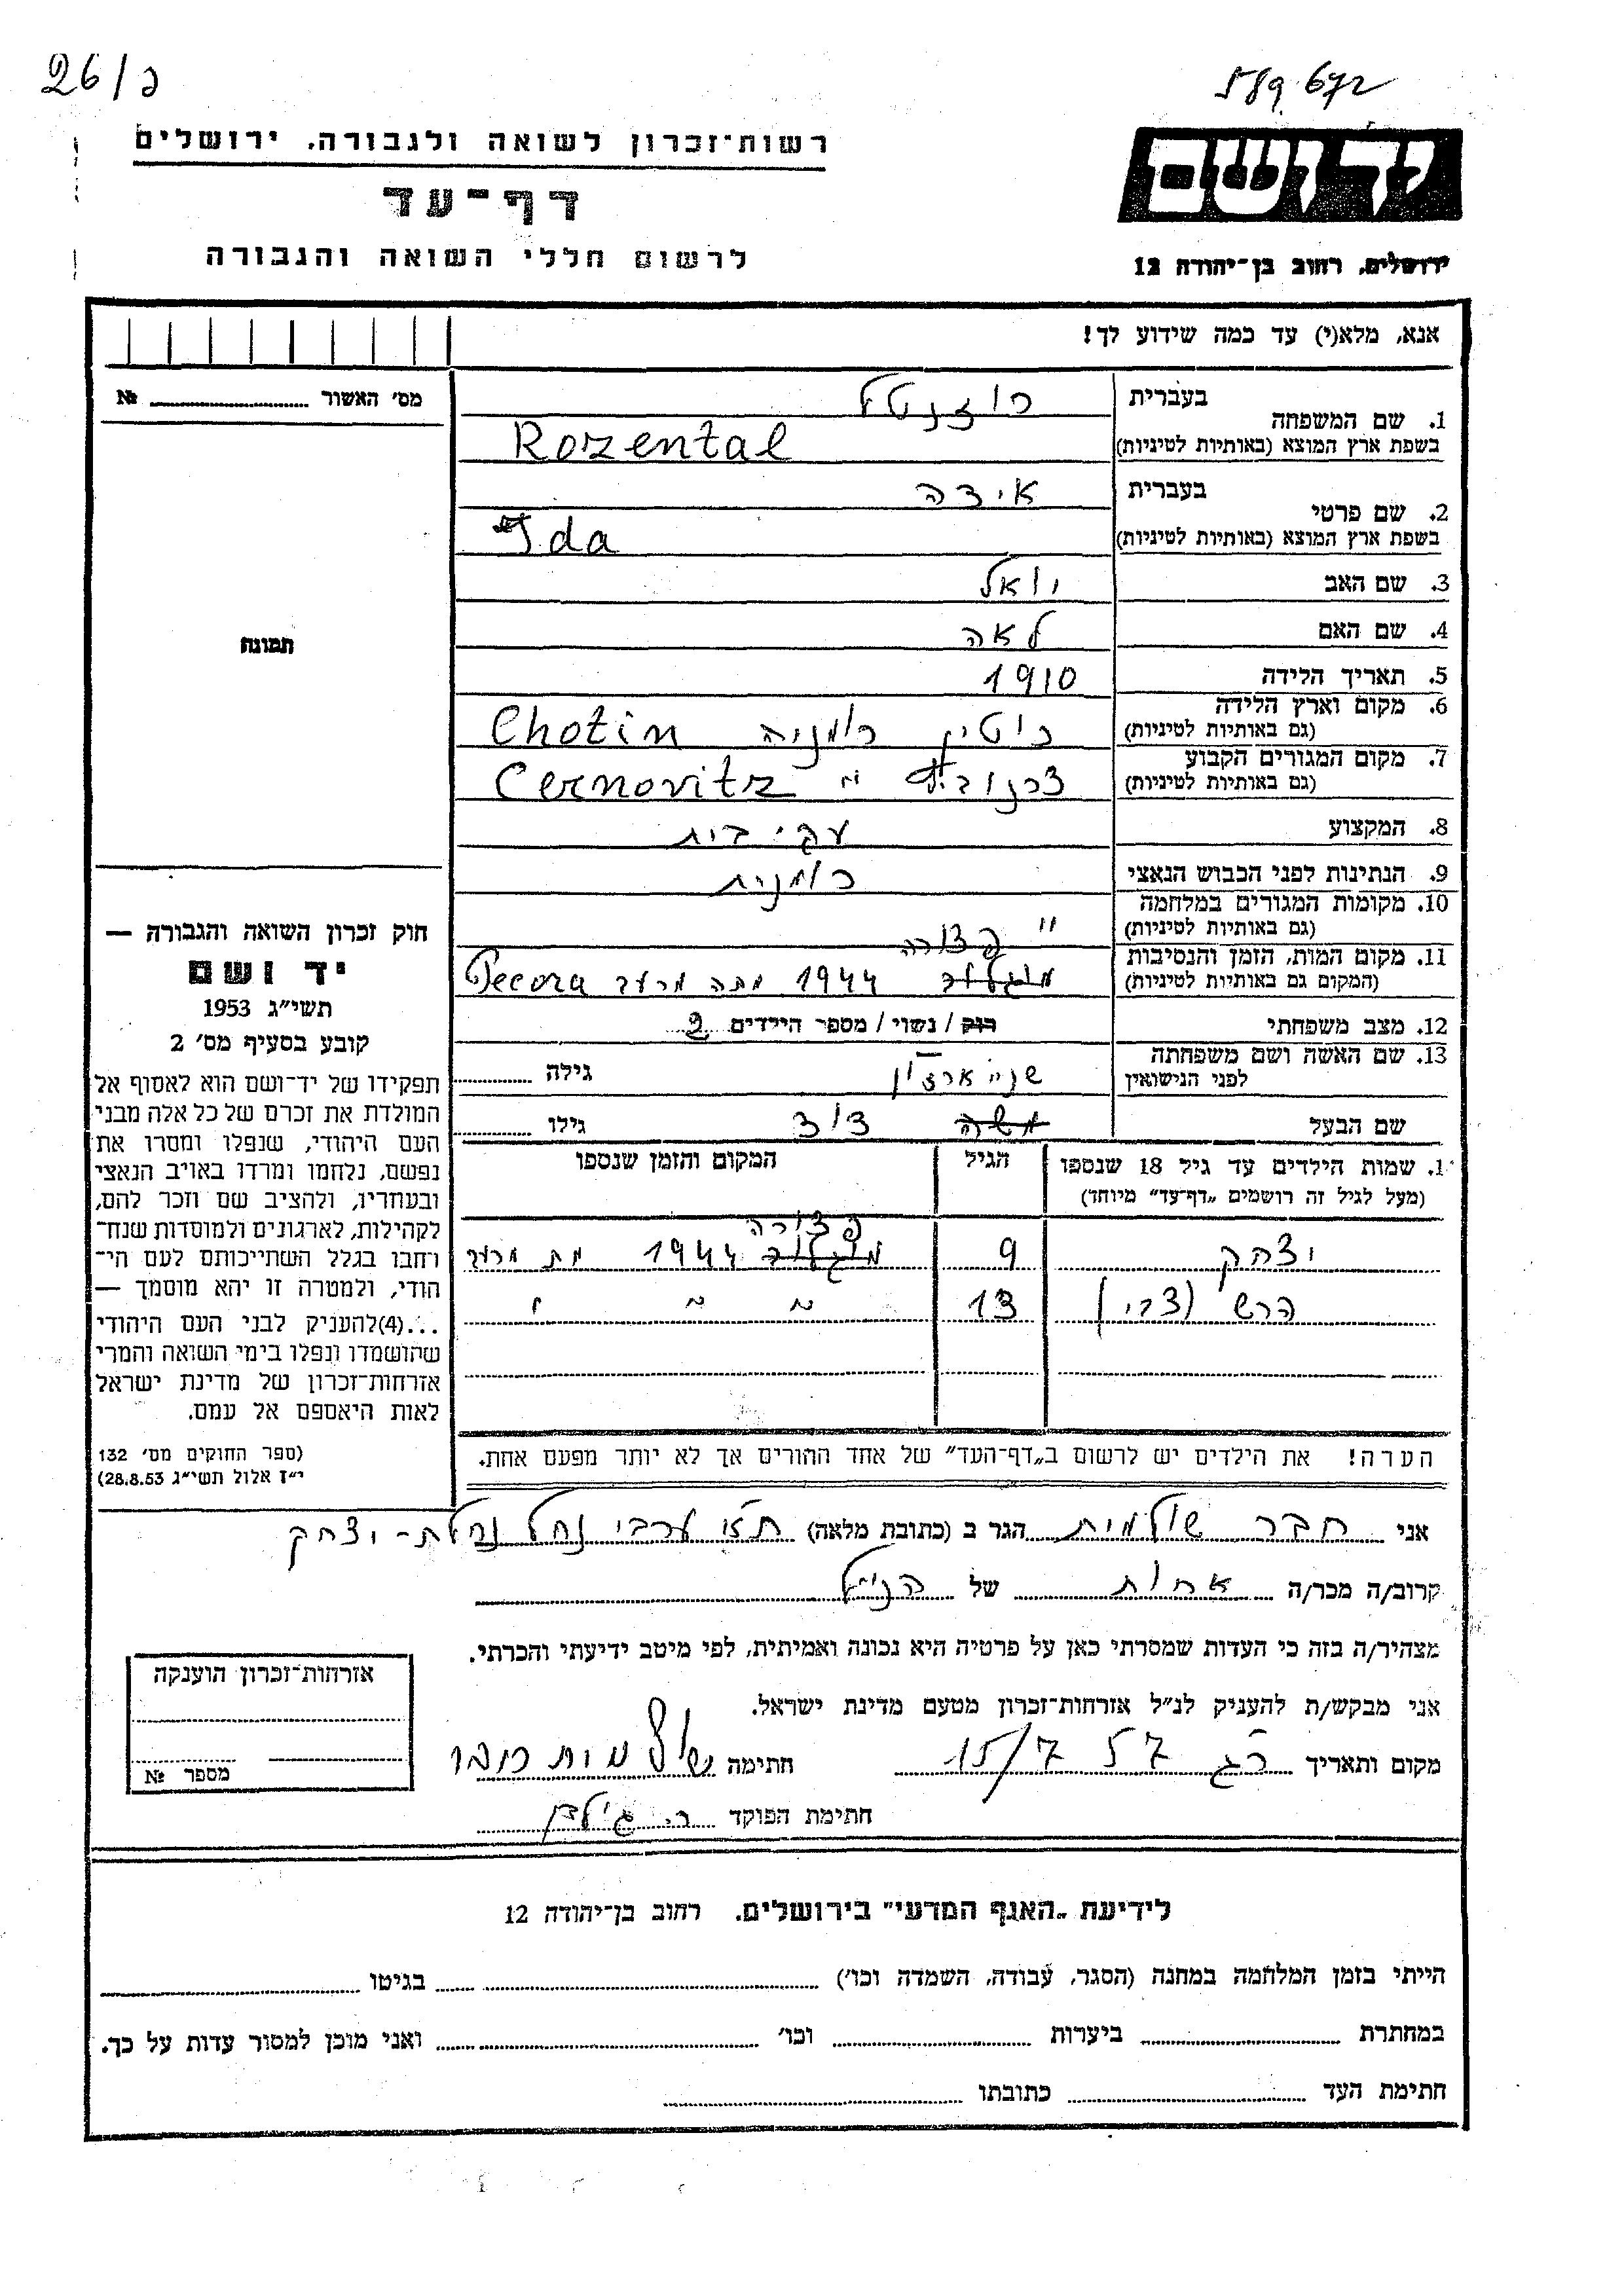 26/כ
589.672
יד ושם
רשות־זכרון לשואה ולגבורה, ירושלים
דף־עד
לרשום חללי השואה והגבורה
ירושלים, רחוב בן־יהודה 12
אנא, מלא(י) עד כמה שידוע לך!
מס׳ האשור № 
תמונה
בעברית רוזנטל
1. שם המשפחה
בשפת ארץ המוצא (באותיות לטיניות) Rozental
בעברית אידה
2. שם פרטי
בשפת ארץ המוצא (באותיות לטיניות) Ida
3. שם האב יואל
4. שם האם לאה
5. תאריך הלידה 1910
6. מקום וארץ הלידה
(גם באותיות לטיניות) חוטין רומניה Chotin
7. מקום המגורים הקבוע
(גם באותיות לטיניות) צרנוביץ " Cernovitz
8. המקצוע עק׳ בית
9. הנתינות לפני הכבוש הנאצי רומנית
10. מקומות המגורים במלחמה
(גם באותיות לטיניות) "
11. מקום המות, הזמן והנסיבות
פצורה
(המקום גם באותיות לטיניות) מוגלוב 1944 מתה מרעב Pecora
12. מצב משפחתי רוק / נשוי / מספר הילדים 2
13. שם האשה ושם משפחתה
לפני הנישואין גילה
שם הבעל משה דוד גילו
1. שמות הילדים עד גיל 18 שנספו הגיל המקום והזמן שנספו
(מעל לגיל זה רושמים „דף־עד״ מיוחד)
פצורה
יצחק 9 מוגלוב 1944 מת מרעב
הרש (צבי) 13 " " "
הערה! את הילדים יש לרשום ב„דף־העד״ של אחד ההורים אך לא יותר מפעם אחת.
חוק זכרון השואה והגבורה —
יד ושם
תשי״ג 1953
קובע בסעיף מס׳ 2
תפקידו של יד־ושם הוא לאסוף אל
המולדת את זכרם של כל אלה מבני
העם היהודי, שנפלו ומסרו את
נפשם, נלחמו ומרדו באויב הנאצי
ובעוזריו, ולהציב שם וזכר להם,
לקהילות, לארגונים ולמוסדות שנח־
רחבו בגלל השתייכותם לעם הי־
הודי, ולמטרה זו יהא מוסמך —
...(4) להעניק לבני העם היהודי
שהושמדו ונפלו בימי השואה והמרי
אזרחות־זכרון של מדינת ישראל
לאות היאספם אל עמם.
(ספר החוקים מס׳ 132
י״ז אלול תשי״ג 28.8.53)
אני חבר שולמית הגר ב (כתובת מלאה) ת״א ערבי נחל נחלת-יצחק
קרוב/ה מכר/ה אחות של הנ״ל
מצהיר/ה בזה כי העדות שמסרתי כאן על פרטיה היא נכונה ואמיתית, לפי מיטב ידיעתי והכרתי.
אני מבקש/ת להעניק לנ״ל אזרחות־זכרון מטעם מדינת ישראל.
מקום ותאריך רג 15/7 57 חתימה שולמית חבר
חתימת הפוקד
אזרחות־זכרון הוענקה
מספר №
לידיעת „האגף המדעי״ בירושלים, רחוב בן־יהודה 12
הייתי בזמן המלחמה במחנה (הסגר, עבודה, השמדה וכו׳) בגיטו
במחתרת ביערות וכו׳ ואני מוכן למסור עדות על כך.
חתימת העד כתובתו